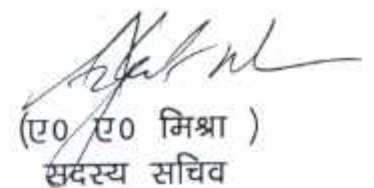 (ए0 ए0 मिश्रा )
सदस्य सचिव